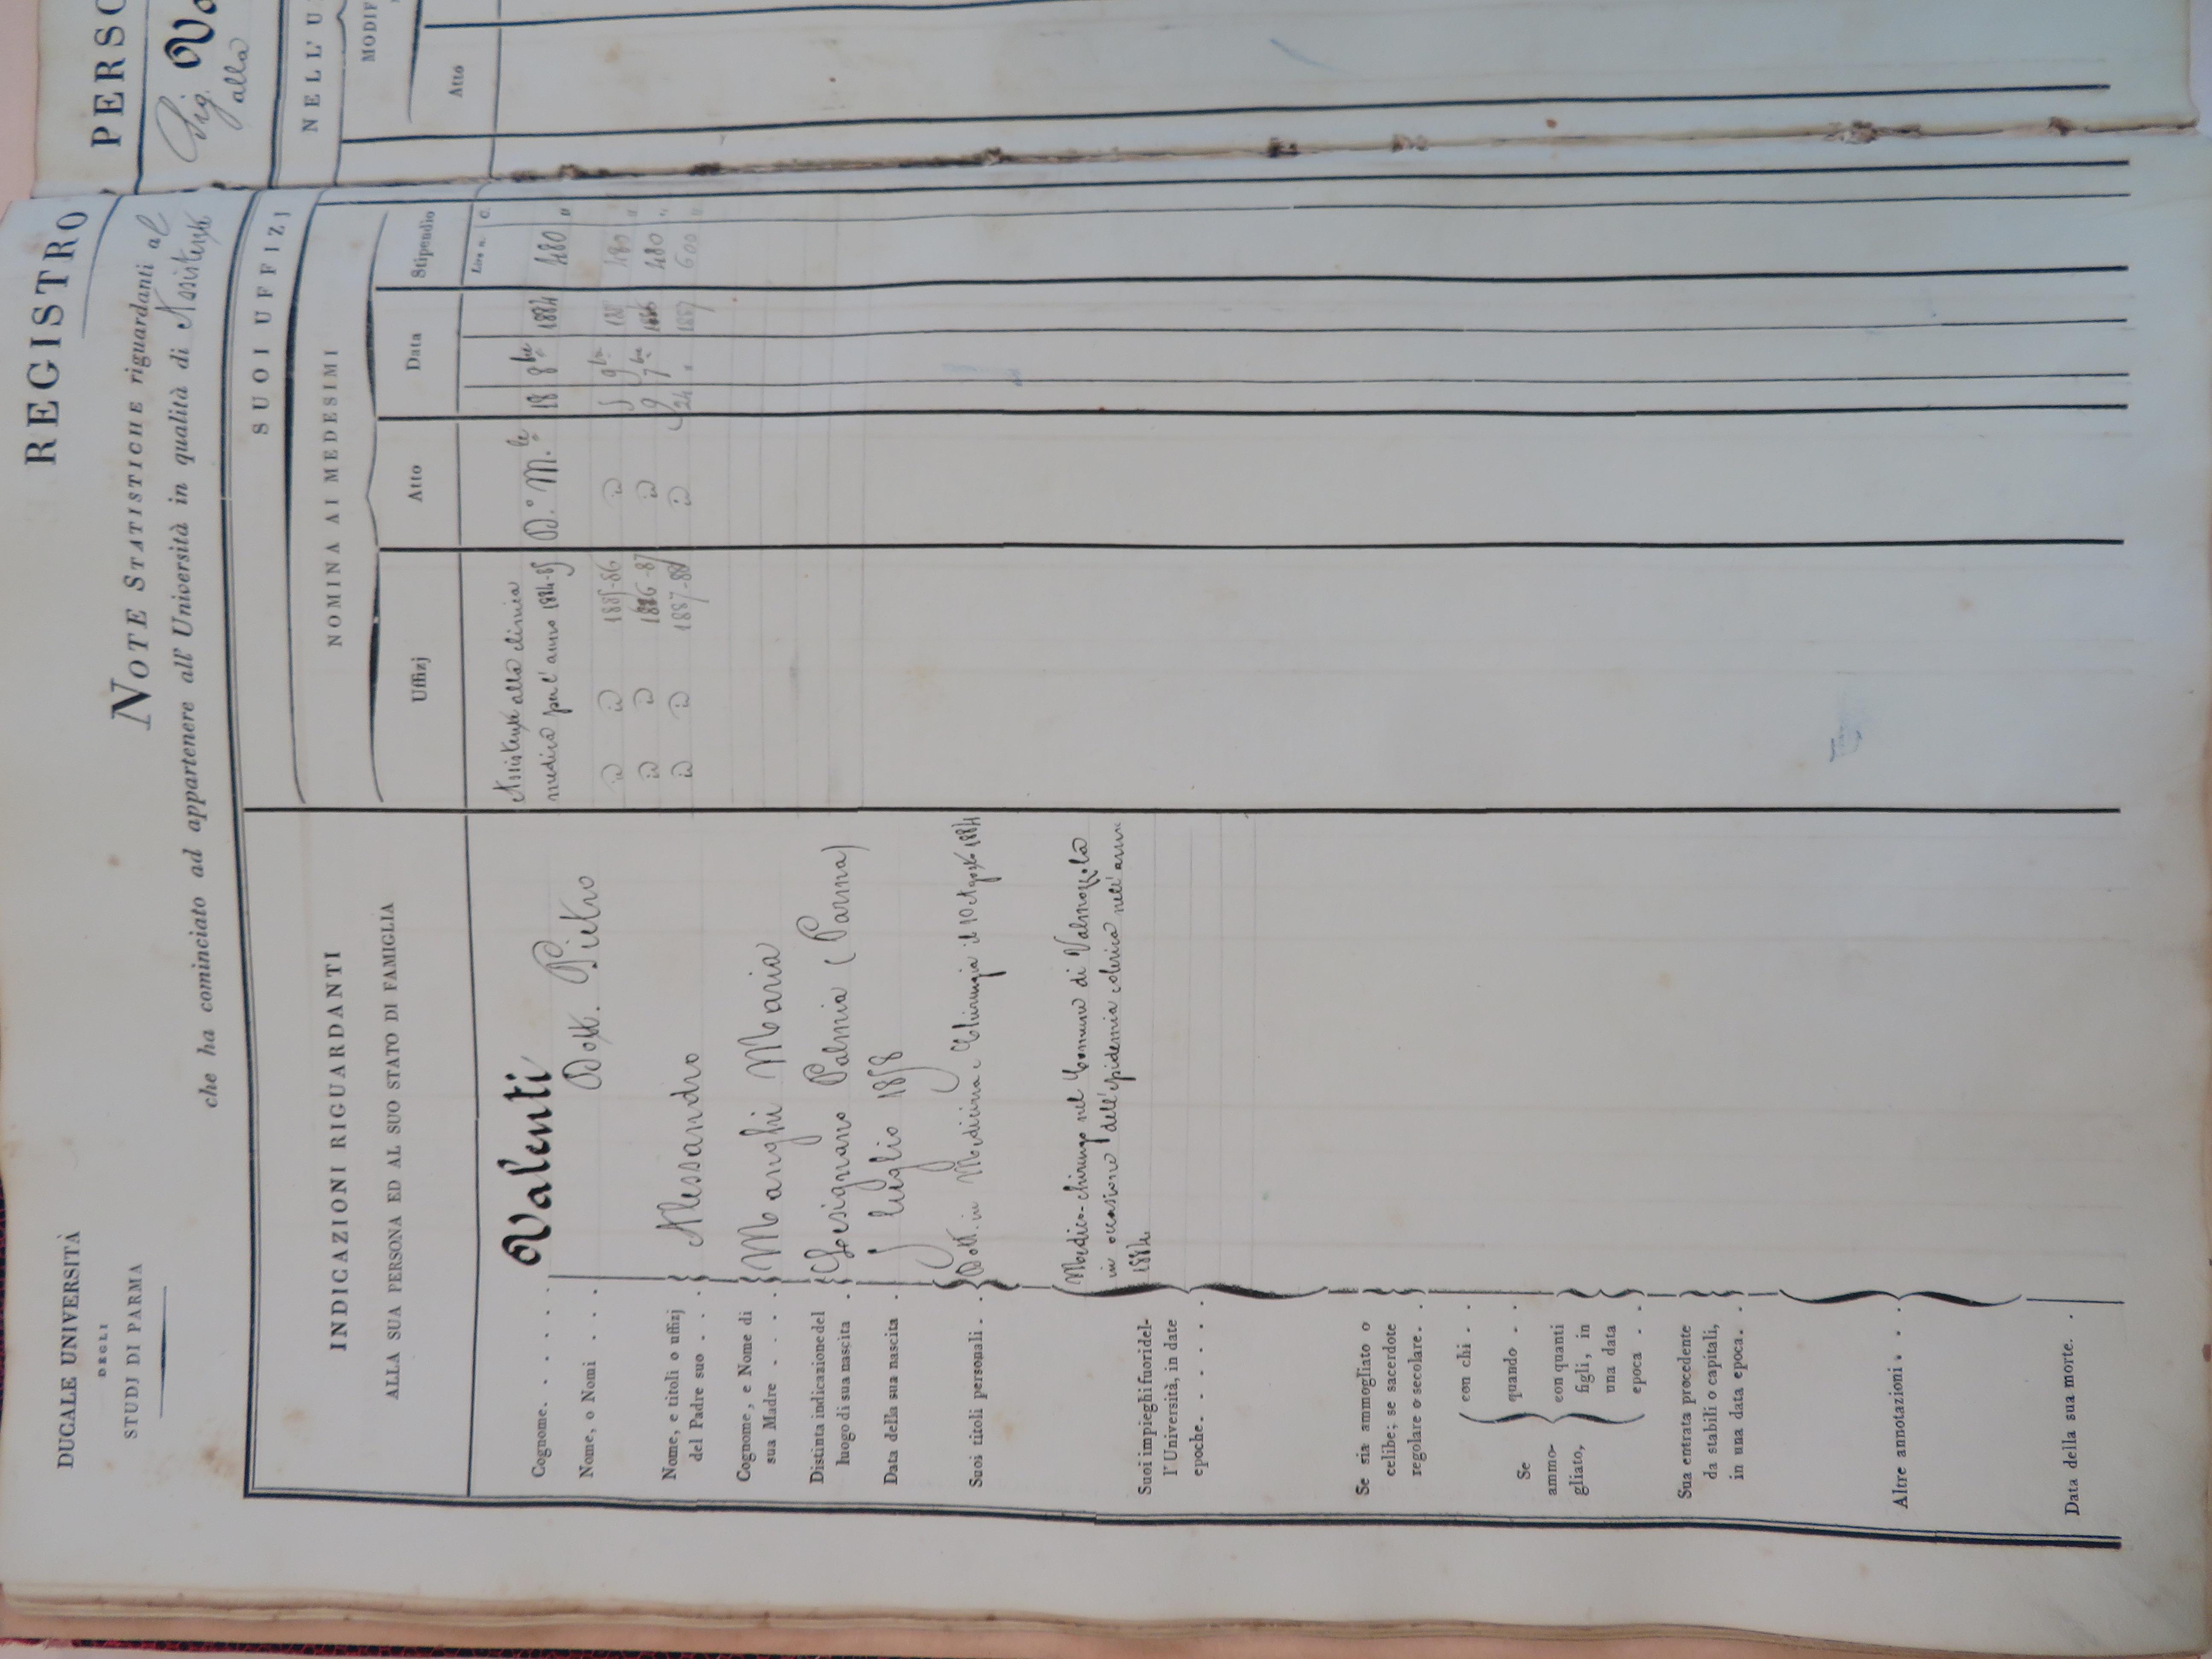 DUCALE UNIVERSITÀ
DEGLI
STUDJ DI PARMA
REGISTRO
NOTE STATISTICHE riguardanti al
che ha cominciato ad appartenere all'Università in qualità di Assistente
INDICAZIONI RIGUARDANTI
ALLA SUA PERSONA ED AL SUO STATO DI FAMIGLIA
Cognome. . . . . . Valenti
Nome, o Nomi . . . Dott. Pietro
Nome, e titoli o uffizj
del Padre suo . . . Alessandro
Cognome, e Nome di
sua Madre . . . . Manghi Maria
Distinta indicazione del
luogo di sua nascita . Lesignano Palmia (Parma)
Data della sua nascita . 5 luglio 1858
Suoi titoli personali . . Dott. in Medicina e Chirurgia il 10 Agosto 1884
Suoi impieghi fuori del-
l'Università, in date
epoche. . . . . .
Medico-chirurgo nel Comune di Valmozzola
in occasione dell'epidemia colerica nell'anno
1884.
Se sia ammogliato o
celibe; se sacerdote
regolare o secolare. .
Se
ammo-
gliato,
con chi . .
quando . .
con quanti
figli, in
una data
epoca . .
Sua entrata procedente
da stabili o capitali,
in una data epoca. .
Altre annotazioni . . .
Data della sua morte. .
SUOI UFFIZJ
NOMINA AI MEDESIMI
Uffizj Atto Data Stipendio
Lire n. C.
Assistente alla clinica
medica per l'anno 1884-85 D.° M.le 18 8bre 1884 480 "
id id 1885-86 id 5 9bre 480 "
id id 1886-87 id 9 7bre 1886 480 "
id id 1887-88 id 24 " 1887 600 "
PERSO
Sig. Va
alla
NELL' U
MODIF
Atto